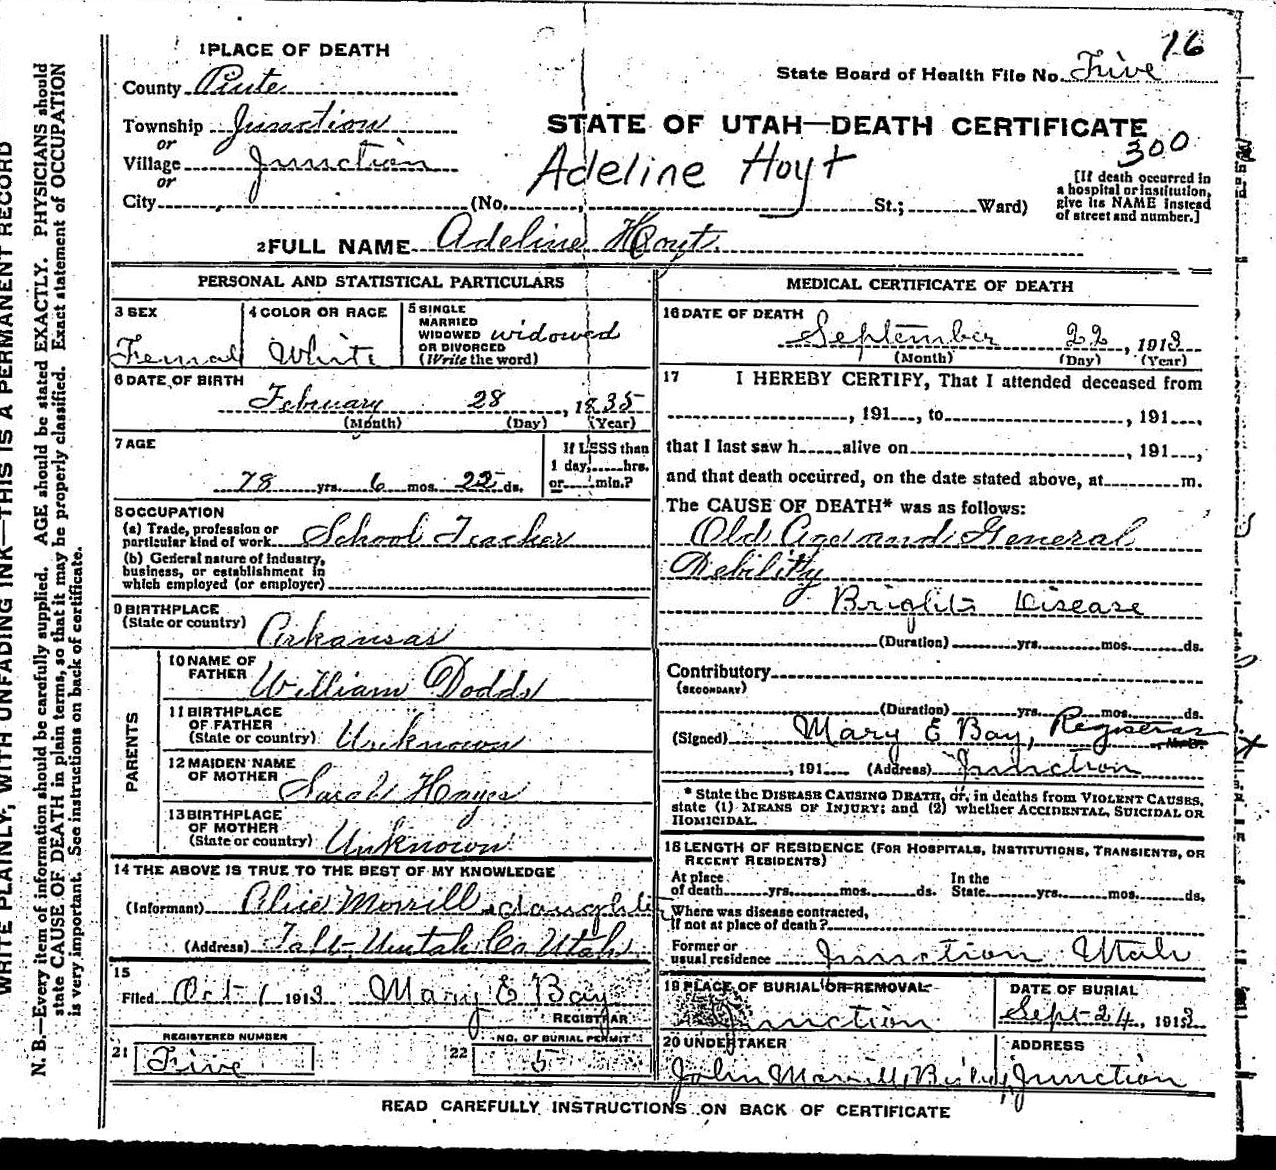 16
1 PLACE OF DEATH
State Board of Health File No. Five
County Piute
Township Junction
STATE OF UTAH—DEATH CERTIFICATE
or
Village Junction
300
or
Adeline Hoyt
[If death occurred in a hospital or institution, give its NAME instead of street and number.]
City (No. St.; Ward)
2 FULL NAME Adeline Hoyt.
PERSONAL AND STATISTICAL PARTICULARS
3 SEX
Femal
4 COLOR OR RACE
White
5 SINGLE
MARRIED
WIDOWED widowed
OR DIVORCED
(Write the word)
6 DATE OF BIRTH
February 28, 1835
(Month) (Day) (Year)
7 AGE
78 yrs. 6 mos. 22 ds.
If LESS than
1 day, hrs.
or min.?
8 OCCUPATION
(a) Trade, profession or
particular kind of work School Teacher
(b) General nature of industry,
business, or establishment in
which employed (or employer)
9 BIRTHPLACE
(State or country) Arkansas
PARENTS
10 NAME OF
FATHER William Dodds
11 BIRTHPLACE
OF FATHER
(State or country) Unknown
12 MAIDEN NAME
OF MOTHER Sarah Hayes
13 BIRTHPLACE
OF MOTHER
(State or country) Unknown
14 THE ABOVE IS TRUE TO THE BEST OF MY KNOWLEDGE
(Informant) Alice Morrill daughter
(Address) Uintah Co. Utah
15
Filed Oct 1 1913 Mary E Bay
REGISTRAR
REGISTERED NUMBER
21 Five
NO. OF BURIAL PERMIT
22 5
MEDICAL CERTIFICATE OF DEATH
16 DATE OF DEATH
September 22, 1913
(Month) (Day) (Year)
17 I HEREBY CERTIFY, That I attended deceased from
, 191 , to , 191 ,
that I last saw h alive on , 191 ,
and that death occurred, on the date stated above, at m.
The CAUSE OF DEATH* was as follows:
Old Age and General
Debility
Brights Disease
(Duration) yrs. mos. ds.
Contributory
(SECONDARY)
(Duration) yrs. mos. ds.
(Signed) Mary E Bay, Registrar M.D.
, 191 (Address) Junction
* State the DISEASE CAUSING DEATH, or, in deaths from VIOLENT CAUSES,
state (1) MEANS OF INJURY; and (2) whether ACCIDENTAL, SUICIDAL OR
HOMICIDAL.
18 LENGTH OF RESIDENCE (FOR HOSPITALS, INSTITUTIONS, TRANSIENTS, OR
RECENT RESIDENTS)
At place
of death yrs. mos. ds.
In the
State yrs. mos. ds.
Where was disease contracted,
if not at place of death?
Former or
usual residence Junction Utah
19 PLACE OF BURIAL OR REMOVAL
Junction
DATE OF BURIAL
Sept 24, 1913
20 UNDERTAKER
John Morrill,
ADDRESS
Junction
READ CAREFULLY INSTRUCTIONS ON BACK OF CERTIFICATE
WRITE PLAINLY, WITH UNFADING INK—THIS IS A PERMANENT RECORD
N. B.—Every item of information should be carefully supplied. AGE should be stated EXACTLY. PHYSICIANS should
state CAUSE OF DEATH in plain terms, so that it may be properly classified. Exact statement of OCCUPATION
is very important. See instructions on back of certificate.